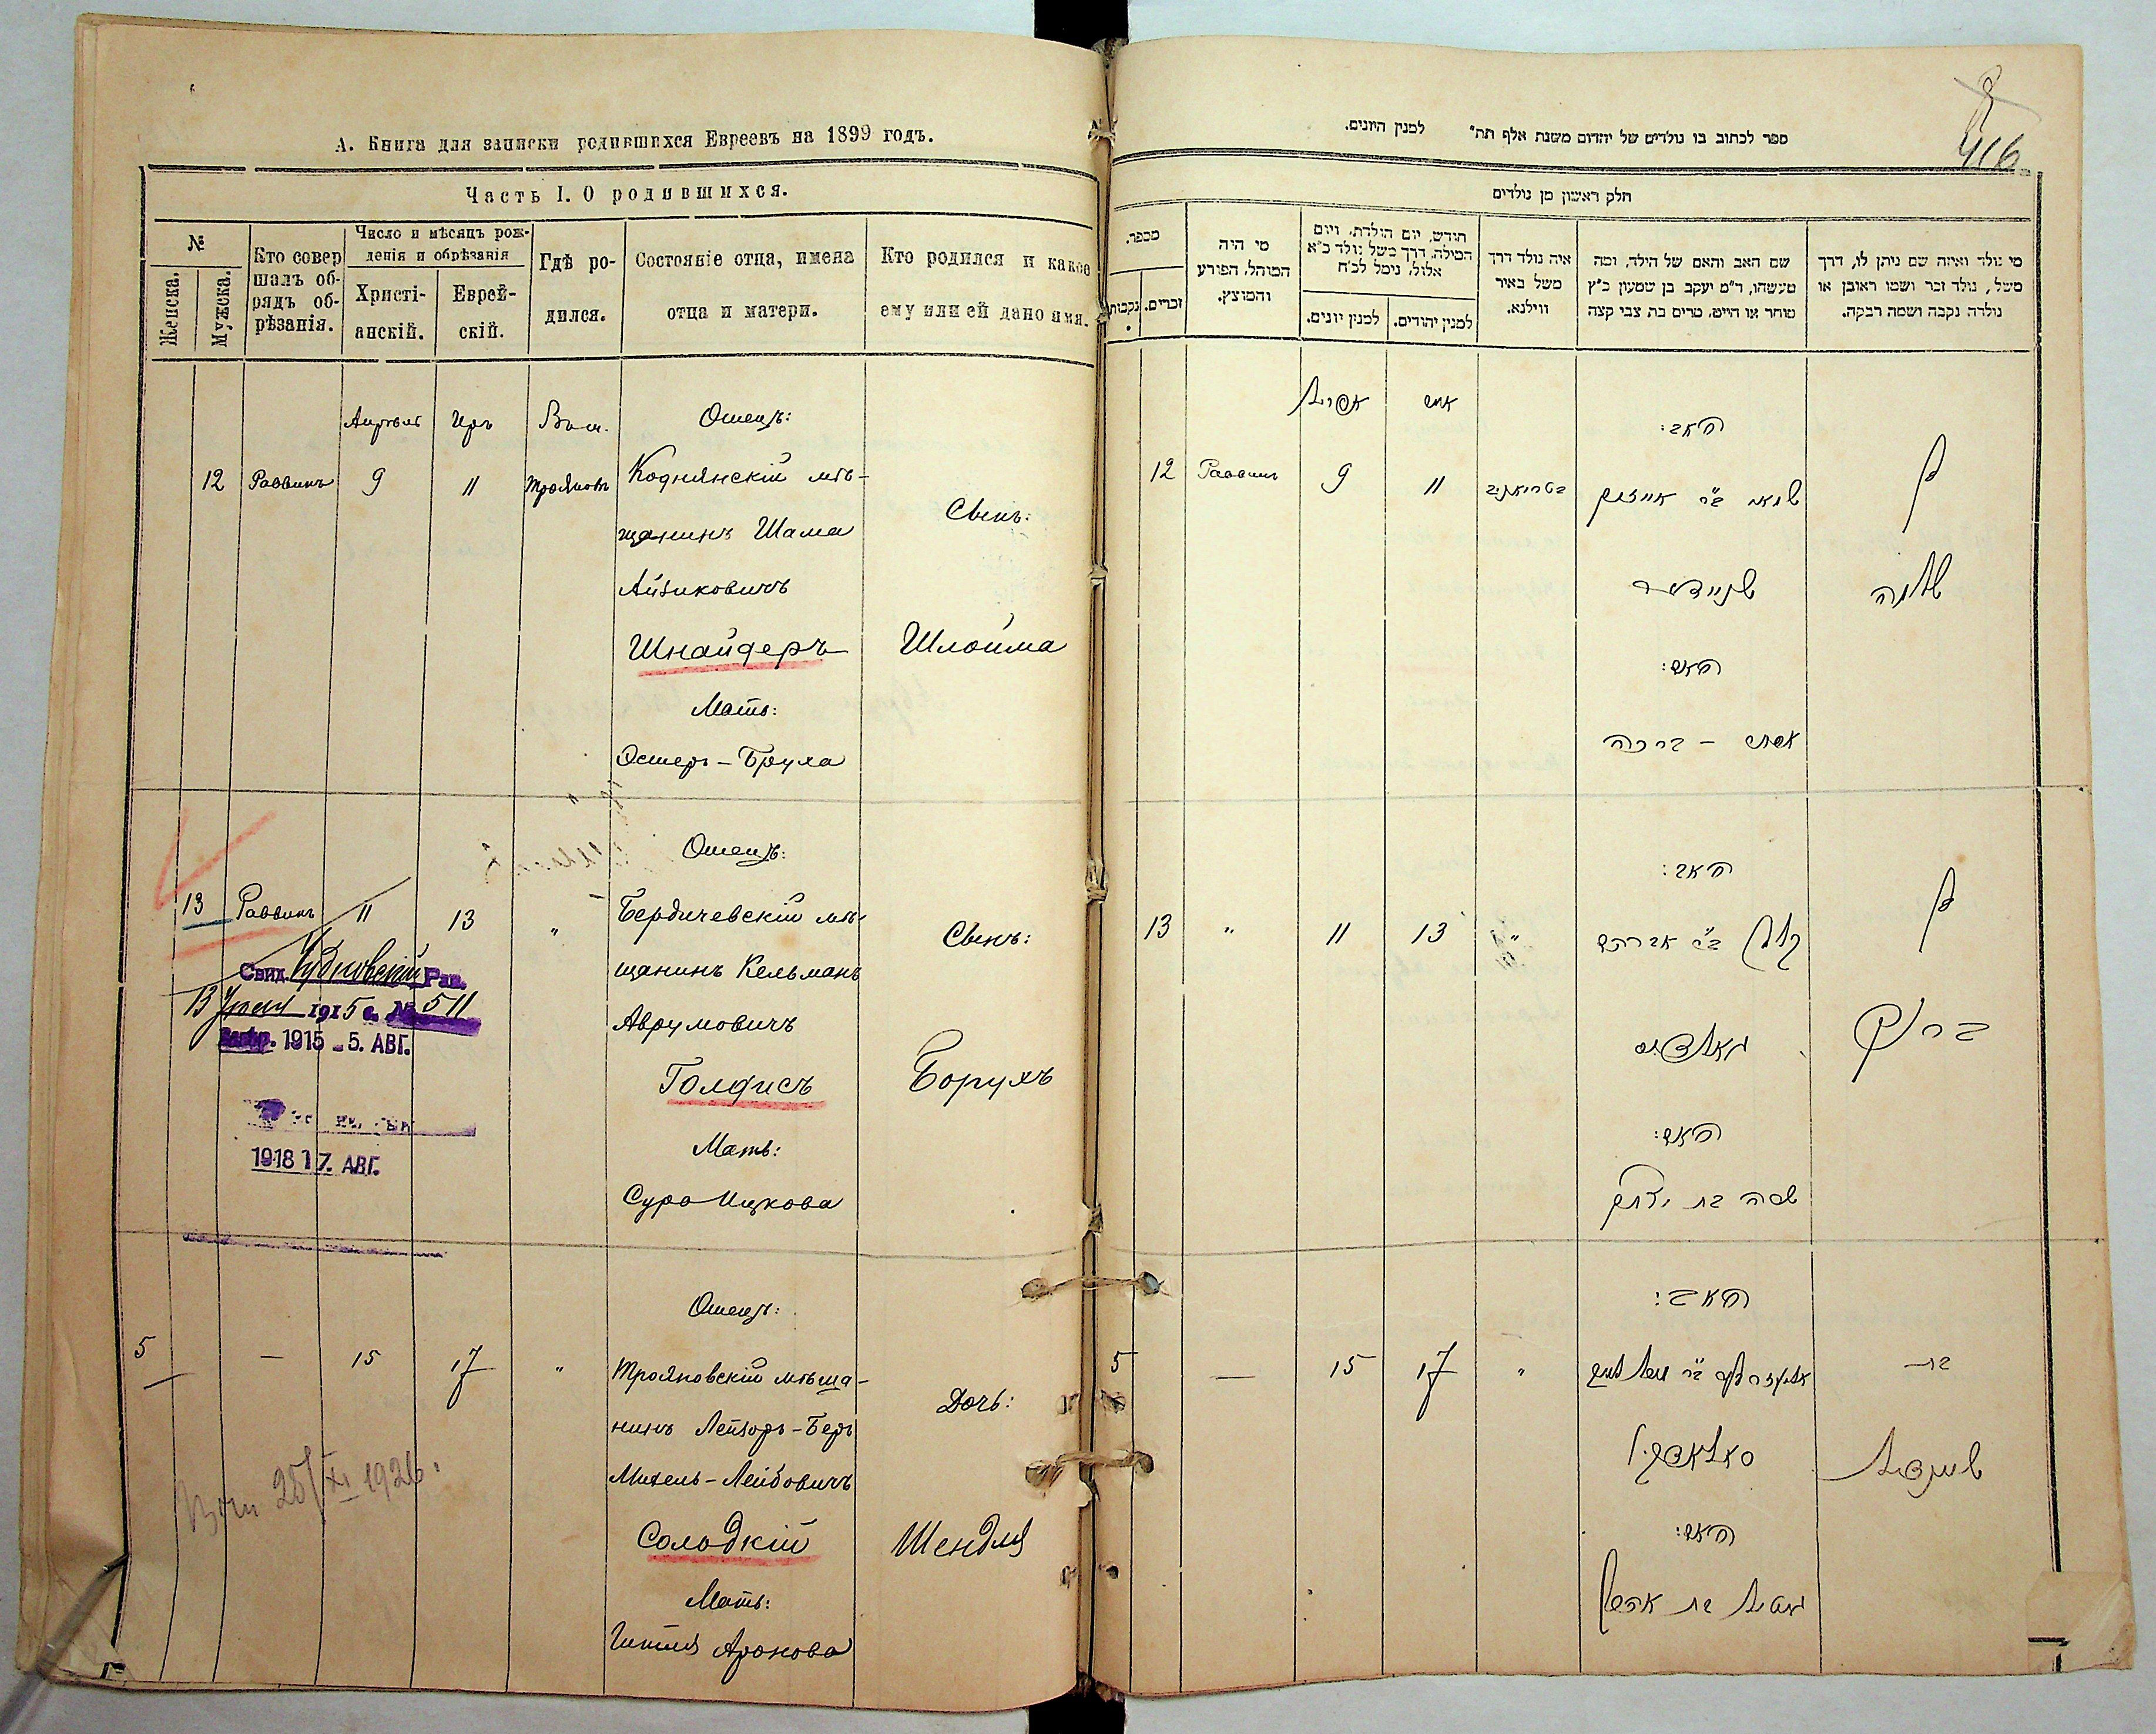 А. Книга для записки родившихся Евреевъ на 1899 годъ.
Часть I. О родившихся.
№
Женска.
Мужска.
Кто совер
шалъ об-
рядъ об-
рѣзанія.
Число и мѣсяцъ рож-
денія и обрѣзанія
Христі-
анскій.
Еврей-
скій.
Гдѣ ро-
дился.
Состояніе отца, имена
отца и матери.
Кто родился и какое
ему или ей дано имя.
Апрѣль Иръ Въ м. Отецъ:
12 Раввинъ 9 11 Трояновѣ Коднянскій мѣ-
щанинъ Шама
Айзиковичъ
Шнайдеръ
Мать:
Эстеръ-Бруха
Сынъ:
Шлойма
Отецъ:
13 Раввинъ 11 13 " Бердичевскій мѣ-
щанинъ Кельманъ
Аврумовичъ
Голфисъ
Мать:
Сура Ицкова
Сынъ:
Борухъ
Свид. Чудновскій Рав.
13 1915 г. № 511
1915 - 5. АВГ.
1918 17. АВГ.
Отецъ:
5 — 15 17 " Трояновскій мѣща-
нинъ Лейзоръ-Беръ
Михель-Лейбовичъ
Солодкій
Мать:
Гитля Аронова
Дочь:
Шендля
25/XI 1926.
416
ספר לכתוב בו נולדים של יהדום משנת אלף תת" למנין היונים.
חלק ראשון מן נולדים
מספר.
נקבות
זכרים.
מי היה
המוהל, הפורע
והמוצץ.
חודש, יום הולדת, ויום
המילה, דרך משל נולד כ"א
אלול, נימל לכ"ח
למנין יונים.
למנין יהודים.
איה נולד דרך
משל באיר
ווילנא.
שם האב והאם של הילד, ומה
מעשהו, ד"מ יעקב בן שמעון כ"ץ
סוחר או חייט, מרים בת צבי קצה
מי נולד ואיזה שם ניתן לו, דרך
משל, נולד זכר ושמו ראובן או
נולדה נקבה ושמה רבקה.
אפריל אייר
האב:
12 Раввинъ 9 11 בטריאניב שמאי ב"ר אייזיק
שניידער
האם:
אסתר - ברכה
בן
שלמה
האב:
13 " 11 13 " קלמן ב"ר אברהם
גאלפיס
האם:
שרה בת יצחק
בן
ברוך
האב:
5 — 15 17 " אליעזר בער ב"ר מיכל לייב
סאלאדקי
האם:
גיטל בת אהרן
בת
שיינדל